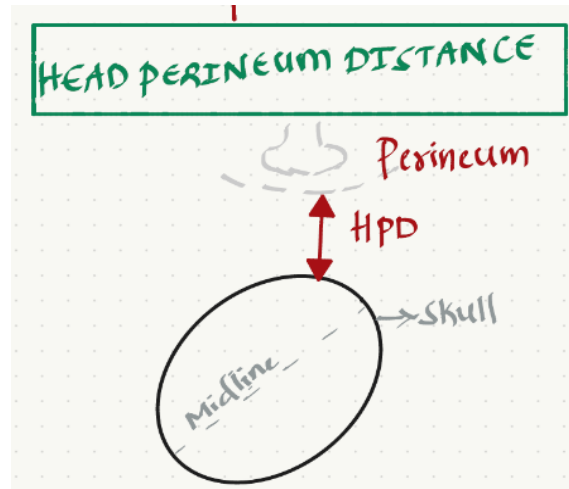 HEAD PERINEUM DISTANCE
Perineum
HPD
Skull
Midline